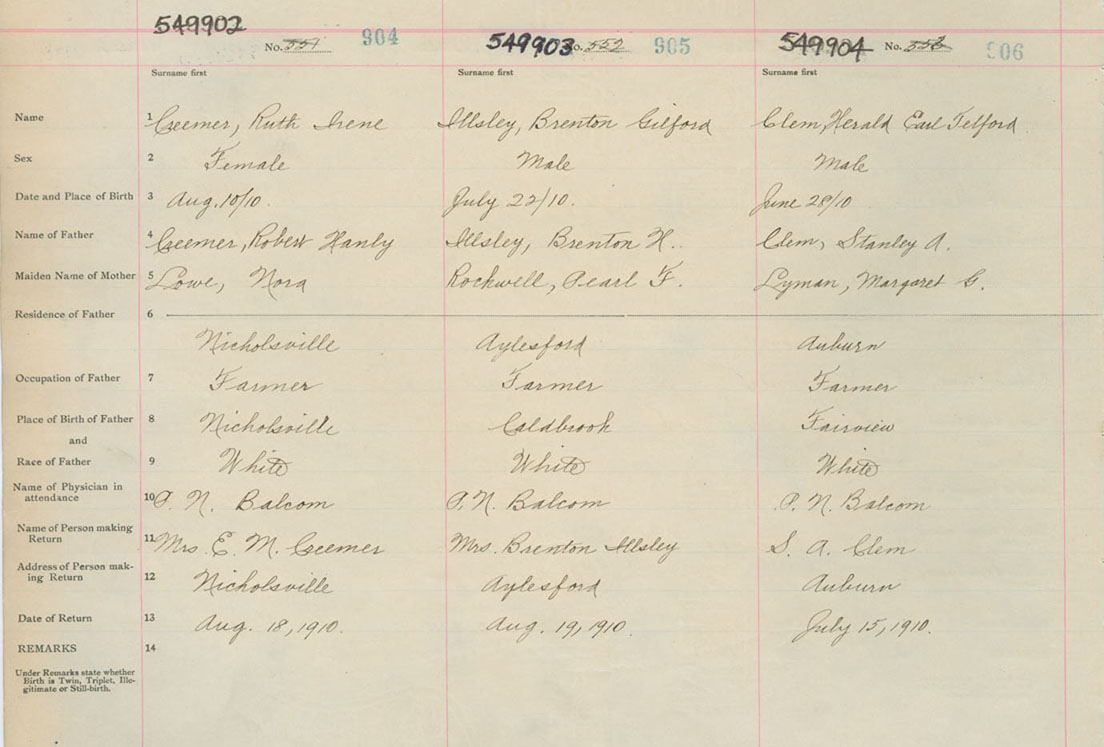 549902 549903 549904
No. 551 904 No. 552 905 No. 553 906
Surname first Surname first Surname first
Name 1 Ceemer, Ruth Irene Illsley, Brenton Gilford Clem, Herald Earl Telford
Sex 2 Female Male Male
Date and Place of Birth 3 Aug. 10/10. July 22/10. June 28/10
Name of Father 4 Ceemer, Robert Hanly Illsley, Brenton H. Clem, Stanley A.
Maiden Name of Mother 5 Lowe, Nora Rockwell, Pearl F. Lyman, Margaret G.
Residence of Father 6
Nicholsville Aylesford Auburn
Occupation of Father 7 Farmer Farmer Farmer
Place of Birth of Father 8 Nicholsville Caldbrook Fairview
and
Race of Father 9 White White White
Name of Physician in
attendance 10 P. N. Balcom P. N. Balcom P. N. Balcom
Name of Person making
Return 11 Mrs. E. M. Ceemer Mrs. Brenton Illsley S. A. Clem
Address of Person mak-
ing Return 12 Nicholsville Aylesford Auburn
Date of Return 13 Aug. 18, 1910. Aug. 19, 1910. July 15, 1910.
REMARKS 14
Under Remarks state whether
Birth is Twin, Triplet, Ille-
gitimate or Still-birth.